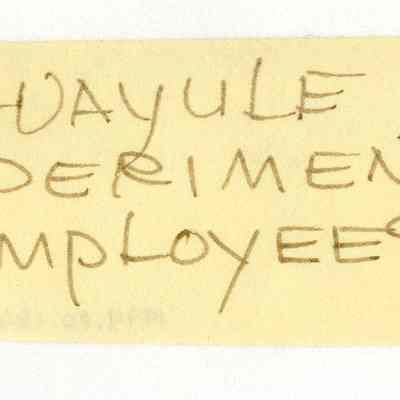 UAYULE
PERIMEN
MPLOYEES